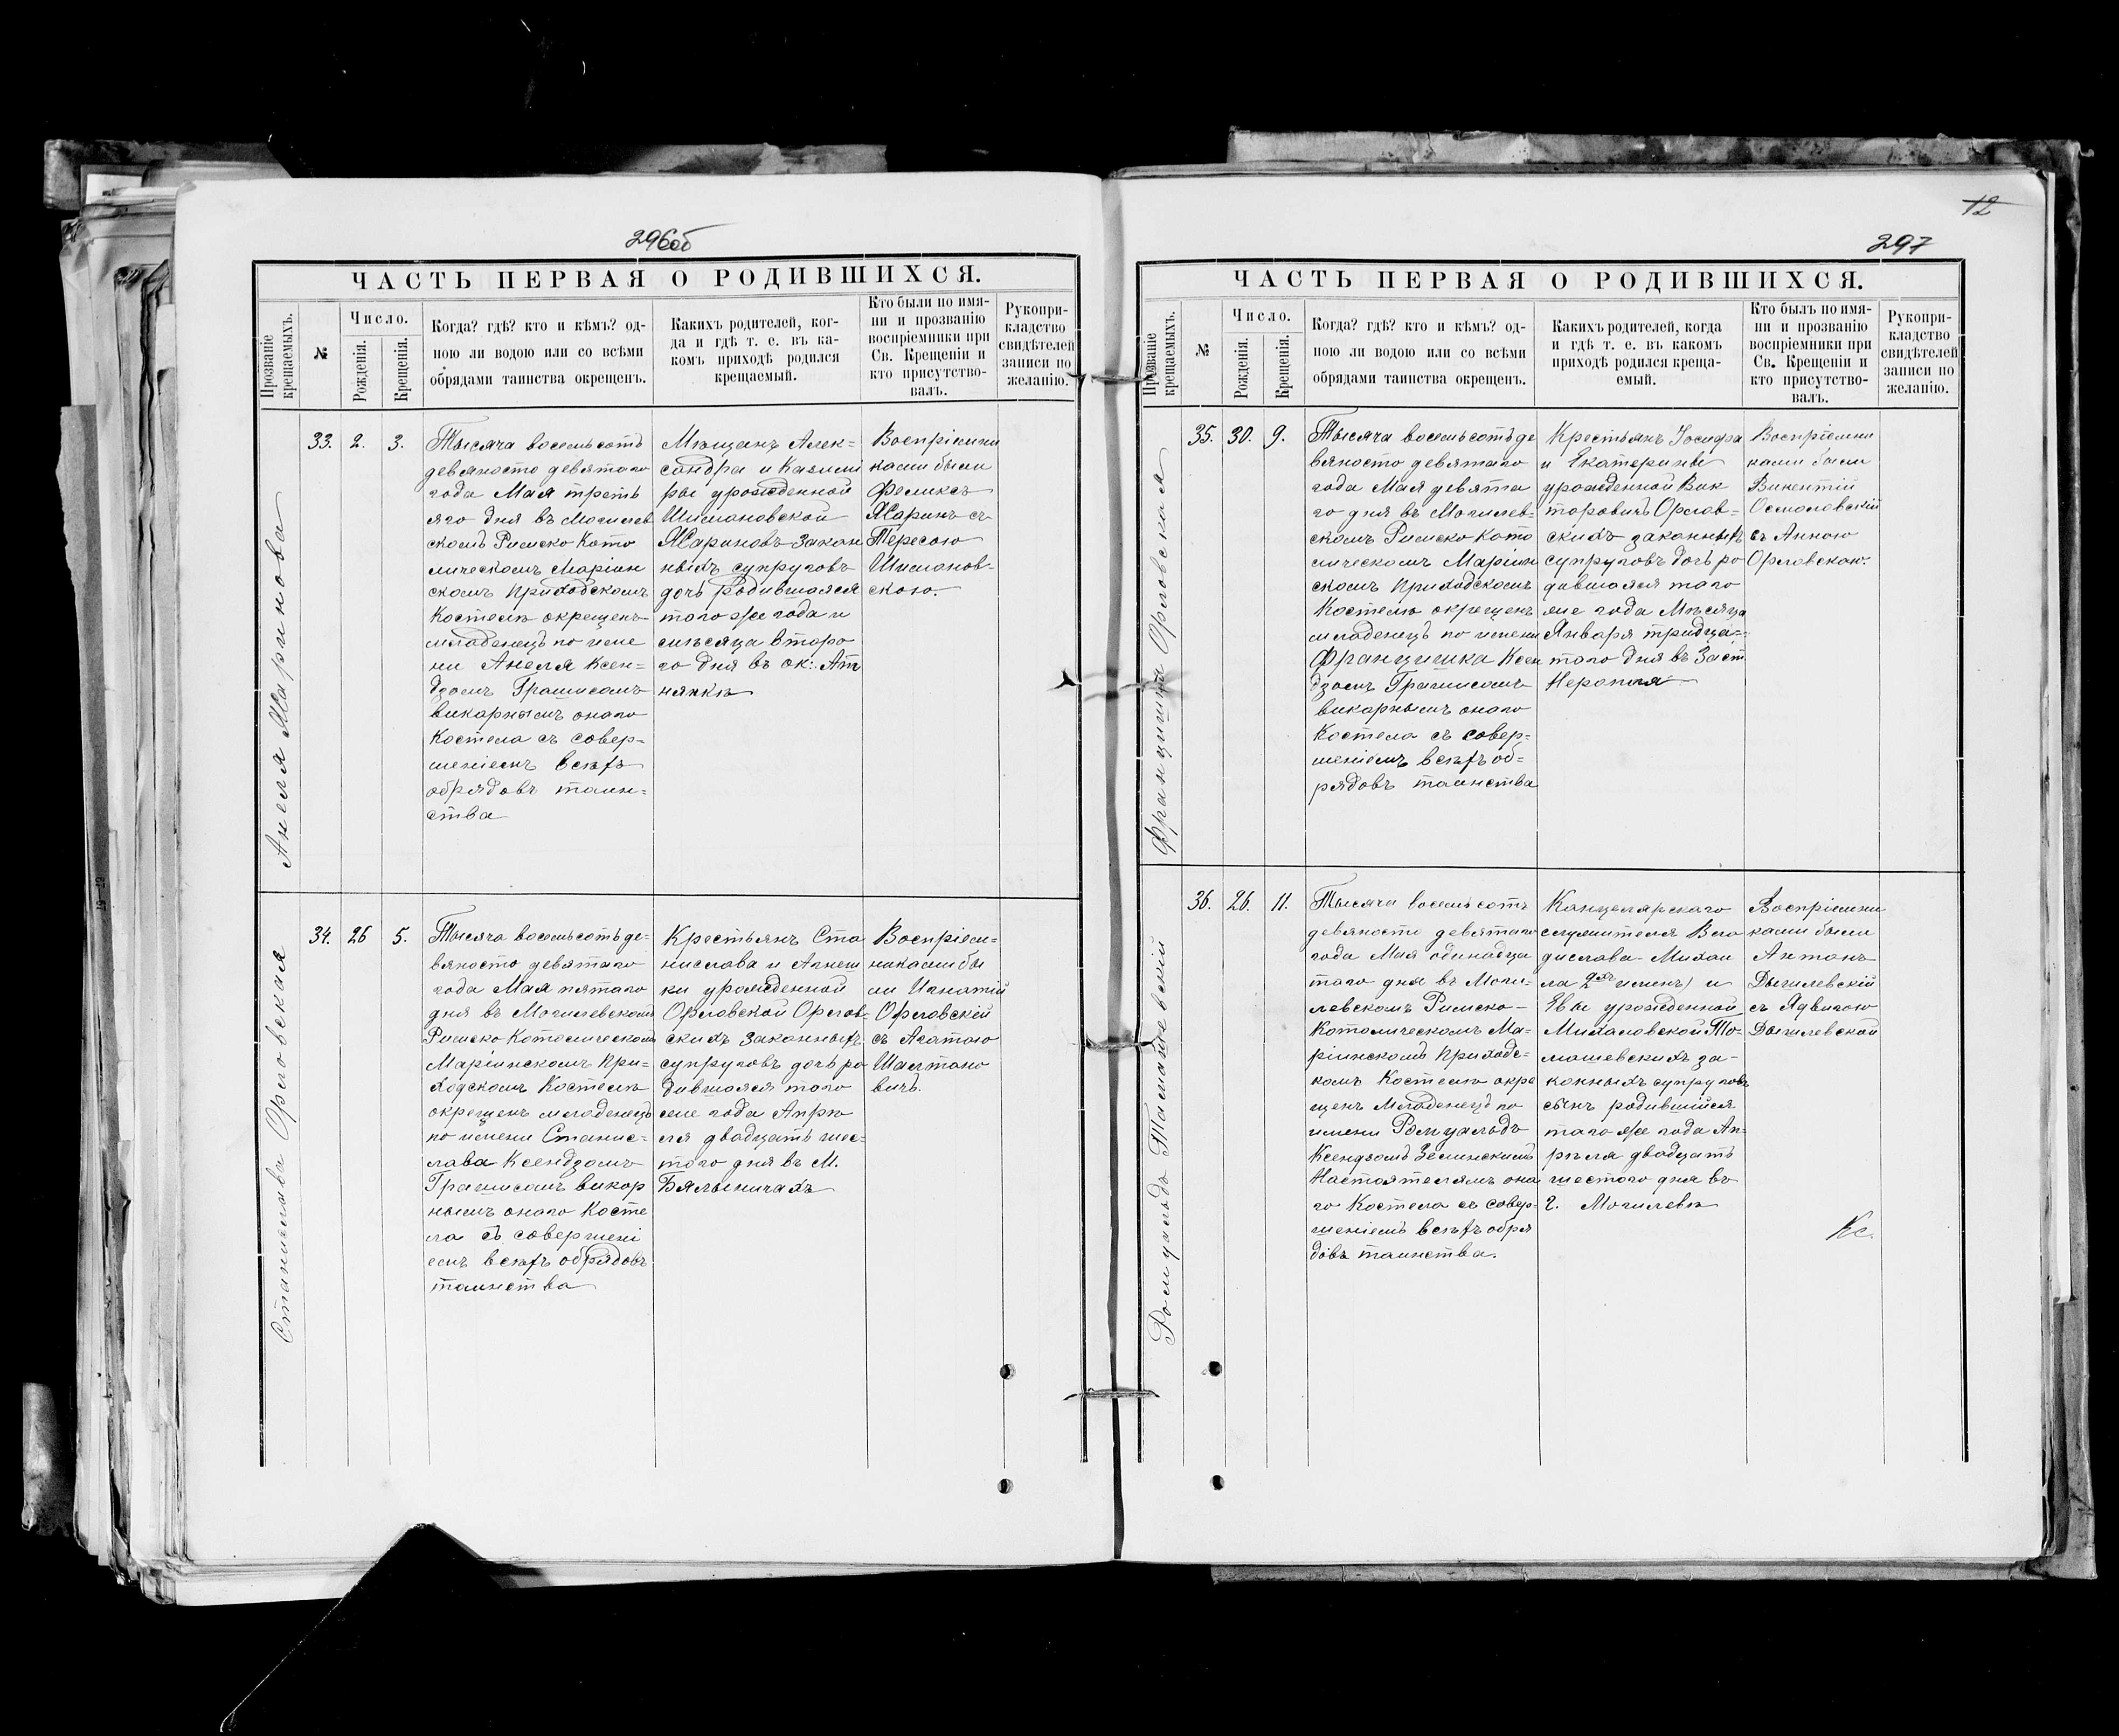 296об
ЧАСТЬ ПЕРВАЯ О РОДИВШИХСЯ.
Прозваніе крещаемыхъ.
№
Число.
Рожденія.
Крещенія.
Когда? гдѣ? кто и кѣмъ? од-
ною ли водою или со всѣми
обрядами таинства окрещенъ.
Какихъ родителей, ког-
да и гдѣ т. е. въ ка-
комъ приходѣ родился
крещаемый.
Кто были по имя-
ни и прозванію
воспріемники при
Св. Крещеніи и
кто присутство-
валъ.
Рукопри-
кладство
свидѣтелей
записи по
желанію.
Анеля Жаринова
33.
2.
3.
Тысяча восемьсотъ
девяносто девятаго
года Мая треть
яго дня въ Могилев
скомъ Римско Като
лическомъ Маріин
скомъ приходскомъ
Костелѣ окрещенъ
младенецъ по име
ни Анеля Ксен=
дзомъ Грашисомъ
викарнымъ онаго
Костела съ совер=
шеніемъ всѣхъ
обрядовъ таин=
ства
Мѣщанъ Алек=
сандра и Казими
ры урожденной
Шимановской
Жариновъ закон
ныхъ супруговъ
дочь родившаяся
того же года и
мѣсяца второ
го дня въ ок:
Воспріемни
ками были
Феликсъ
Жаринъ съ
Тересою
Шиманов-
скою.
Станислава Орловская
34.
26
5.
Тысяча восемьсотъ де=
вяносто девятаго
года Мая пятаго
дня въ Могилевскомъ
Римско Католическомъ
Маріинскомъ при=
ходскомъ Костелѣ
окрещенъ младенецъ
по имени Станис=
лава Ксендзомъ
Грашисомъ викар
нымъ онаго Косте
ла съ совершені
емъ всѣхъ обрядовъ
таинства
Крестьянъ Ста
нислава и Агнеш
ки урожденной
Орловской Орлов-
скихъ законныхъ
супруговъ дочь ро
дившаяся того
же года Апрѣ
ля двадцать шес=
того дня въ М.
Бялыничахъ
Воспріем=
никами бы
ли Игнатій
Орловскій
съ Агатою
вичъ.
12
297
ЧАСТЬ ПЕРВАЯ О РОДИВШИХСЯ.
Прозваніе крещаемыхъ.
№
Число.
Рожденія.
Крещенія.
Когда? гдѣ? кто и кѣмъ? од-
ною ли водою или со всѣми
обрядами таинства окрещенъ.
Какихъ родителей, когда
и гдѣ т. е. въ какомъ
приходѣ родился креща-
емый.
Кто былъ по имя-
ни и прозванію
воспріемники при
Св. Крещеніи и
кто присутство-
валъ.
Рукопри-
кладство
свидѣтелей
записи по
желанію.
Францишка Орловская
35.
30.
9.
Тысяча восемьсотъ де
вяносто девятаго
года Мая девята
го дня въ Могилев-
скомъ Римско Като
лическомъ Маріин
скомъ приходскомъ
Костелѣ окрещенъ
младенецъ по имени
Францишка Ксен
дзомъ Грашисомъ
викарнымъ онаго
Костела съ совер=
шеніемъ всѣхъ об=
рядовъ таинства
Крестьянъ Іосифа
и Екатерины
урожденной Вик
торовичъ Орлов=
скихъ законныхъ
супруговъ дочь ро
дившаяся того
же года Мѣсяца
Января тридца=
таго дня въ Заст.
Воспріемни
ками были
Викентій
Осмоловскій
съ Анною
Орловскою.
Ромуальдъ Томашевскій
36.
26.
11.
Тысяча восемьсотъ
девяносто девятаго
года Мая одинадца
таго дня въ Моги-
левскомъ Римско-
Католическомъ Ма-
ріинскомъ приходс=
комъ Костелѣ окре
щенъ Младенецъ по
имени Ромуальдъ
Ксендзомъ Зелинскимъ
Настоятелямъ она
го Костела съ совер-
шеніемъ всѣхъ обря
довъ таинства.
Канцелярскаго
служителя Вла
дислава-Михаи
ла 2хъ именъ) и
Евы урожденной
Михаловской То-
машевскихъ за-
конныхъ супруговъ
сынъ родившійся
того же года Ап=
рѣля двадцать
шестого дня въ
г. Могилевѣ
Воспріемни
ками были
Антонъ
Дыгилевскій
съ Ядвигою
Дыгилевской
Кс.